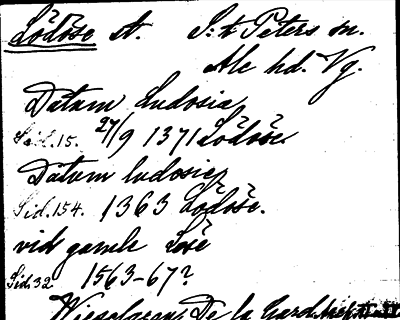 Lödöse st. S:t Peters sn.
Ale hd. Vg.
Datum Ludosia
Sid. 15. 27/9 1371 Lödöse
Datum ludosie
Sid. 154. 1363 Lödöse.
vid gamle Löse
Sid. 32 1563-67?
De la Gard